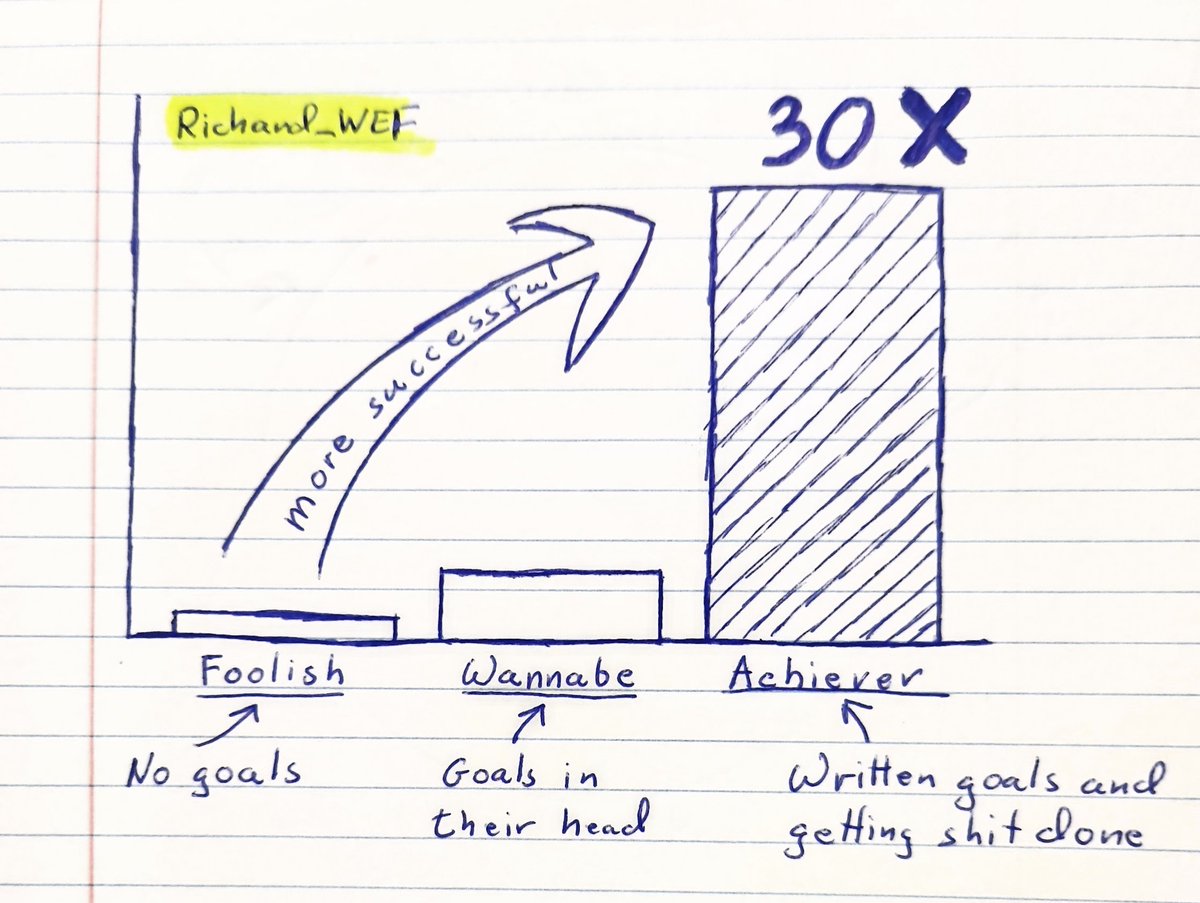 Richard_WEF
30 X
more successful
Foolish
Wannabe
Achiever
No goals
Goals in
their head
Written goals and
getting shit done